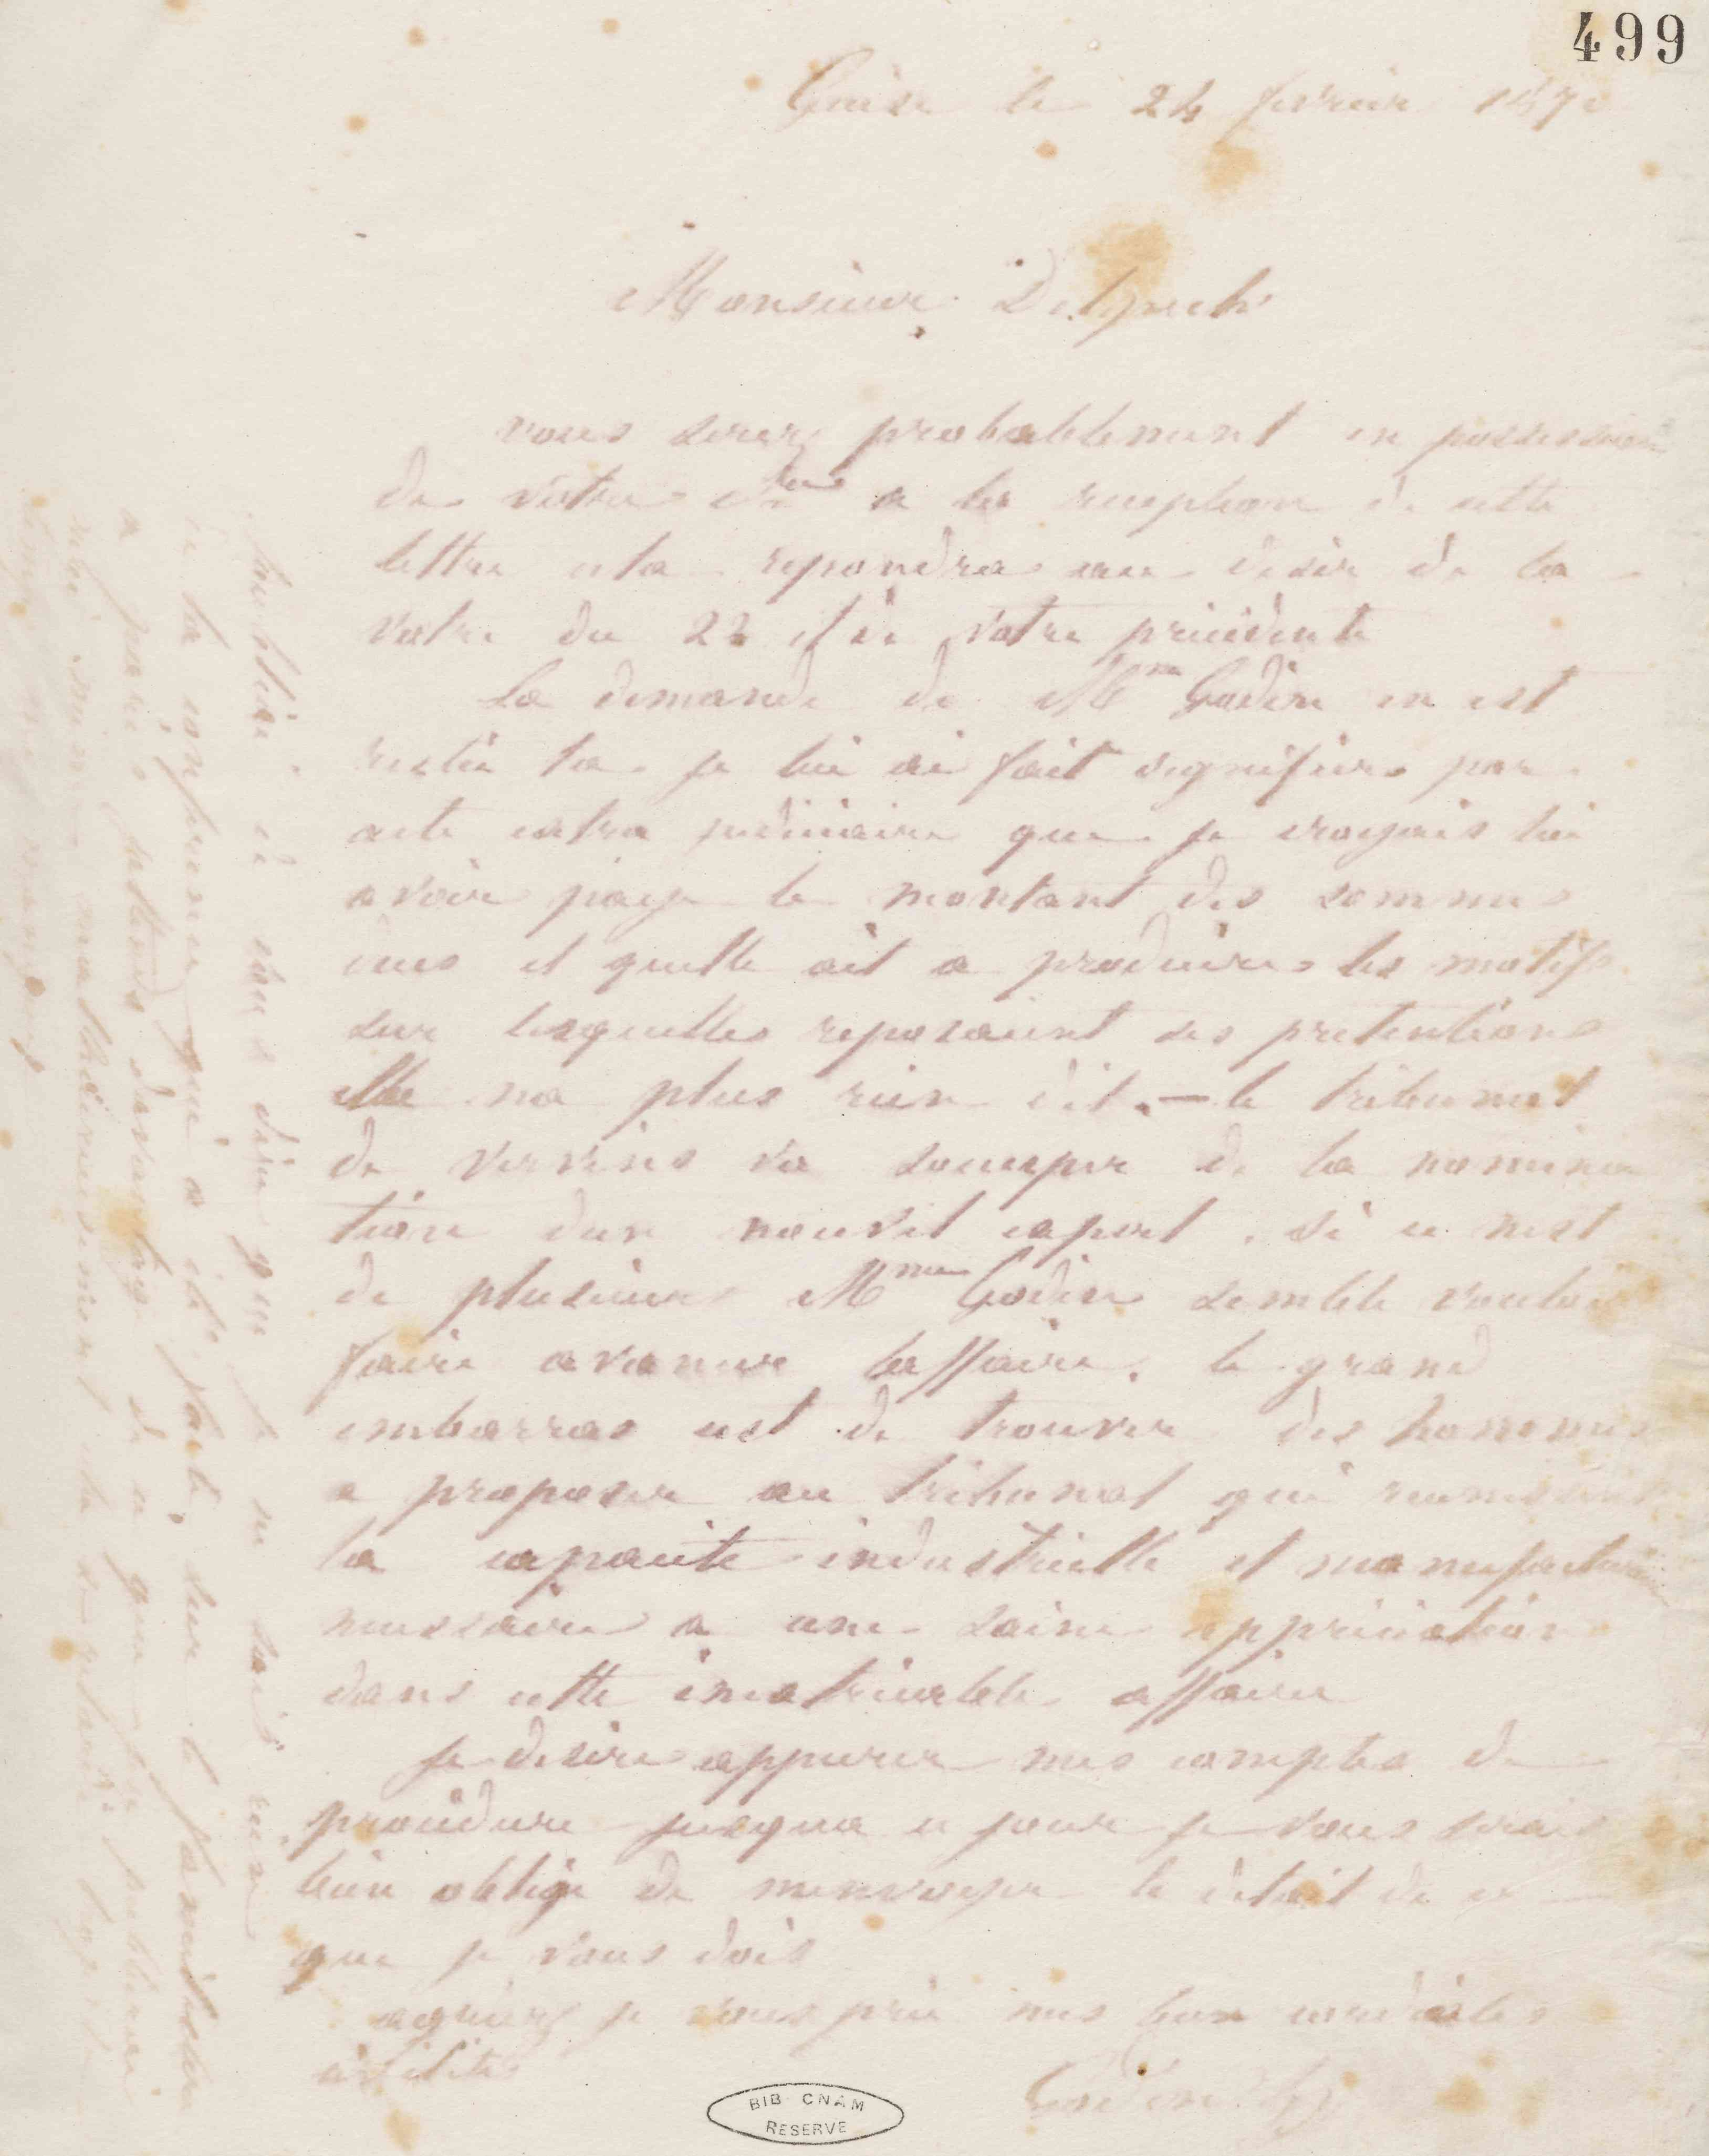 499
Guise le 24 fevrier 187
Monsieur Delpech
vous serez probablement en possession
de votre a la reception de cette
lettre cela repondra au desir de la
votre du 22 et de votre precédente
La demande de Mme Godin en est
restée la je lui ai fait signifier par
acte extra judiciaire que je croyais lui
avoir payé le montant des sommes
dues et quelle ait a produire les motifs
sur lesquelles reposaient ses pretentions
elle na plus rien dit. — le tribunal
de vervins va soccuper de la nomina
tion dun nouvel expert. si ce nest
de plusieurs Mme Godin semble vouloir
faire avancer laffaire. le grand
embarras est de trouver des hommes
a proposer au tribunal qui reunissent
la capacité industrielle et manufacturière
necessaire a une saine appréciation
dans cette inextricable affaire
je desire appurer mes comptes de
procédure jusqua ce jour je vous serais
bien obligé de menvoyer le détail de ce
que je vous dois
agréez je vous prie mes bien cordiales
civilités
Godin
oublié de vous dire que je ne sais rien
de la conference qui a été faite sur le familistere
a paris davantage de ce que je publierai
malheureusement
temps me manque
BIB CNAM
RESERVE